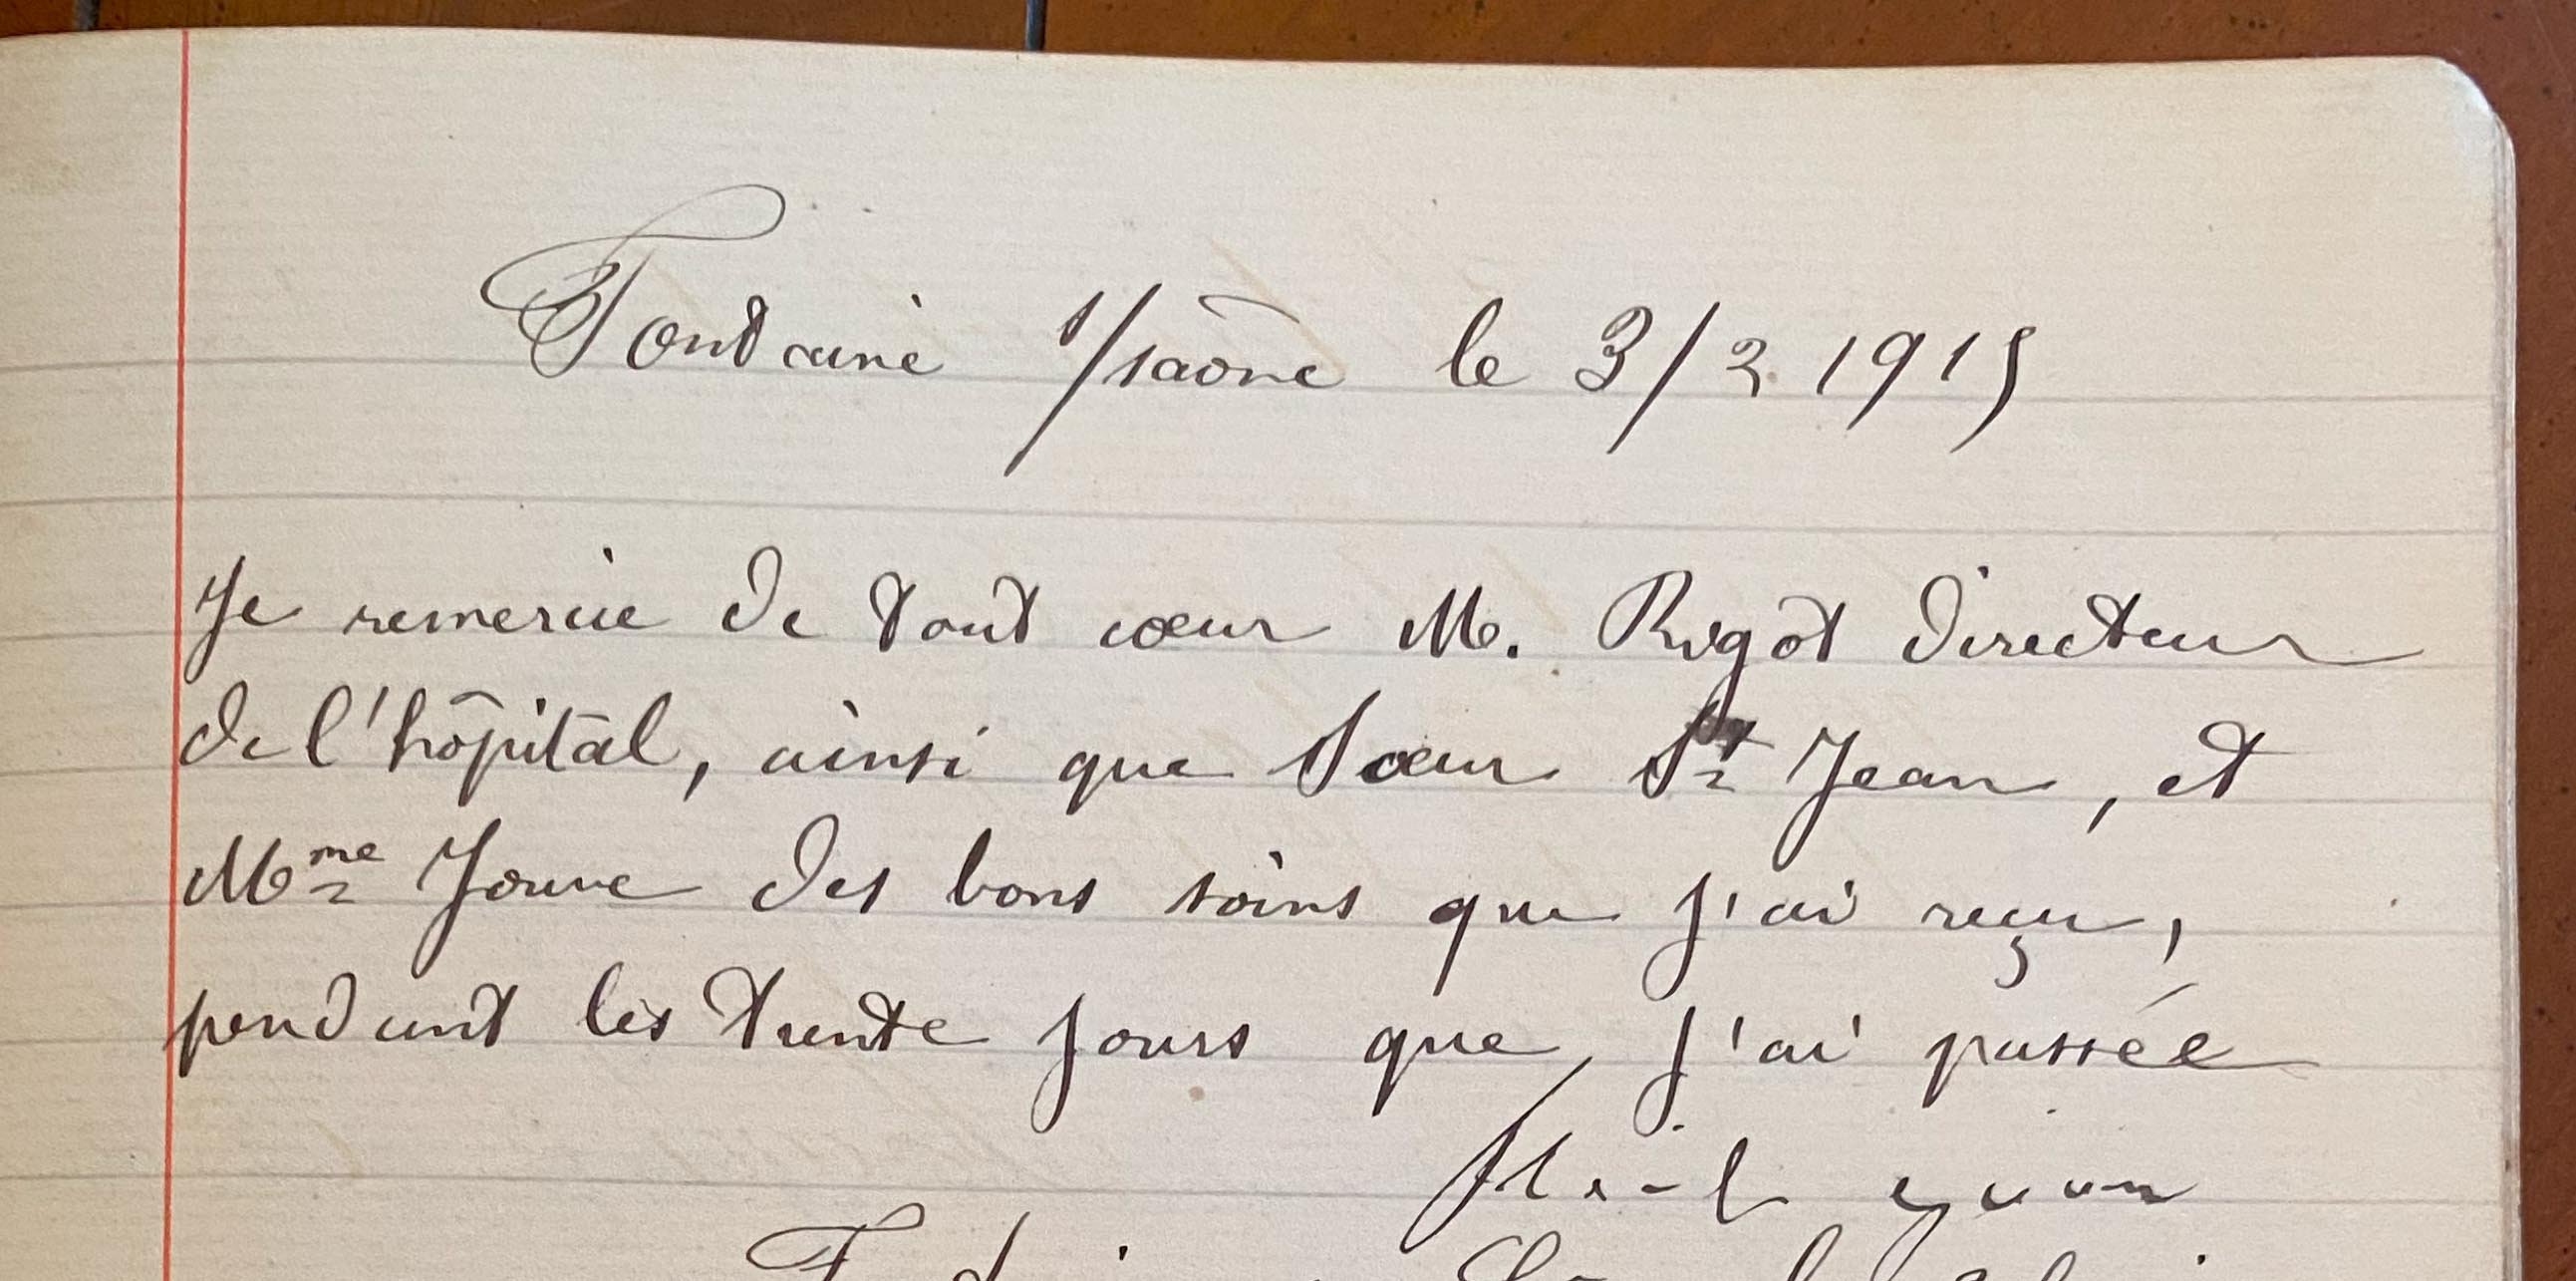 Fontaine s/saône le 3/2 1915
Je remercie de tout cœur M. Rigot directeur
de l'hôpital, ainsi que Sœur St Jean, et
Mme Jouve des bons soins que j'ai reçu,
pendant les trente jours que, j'ai passée